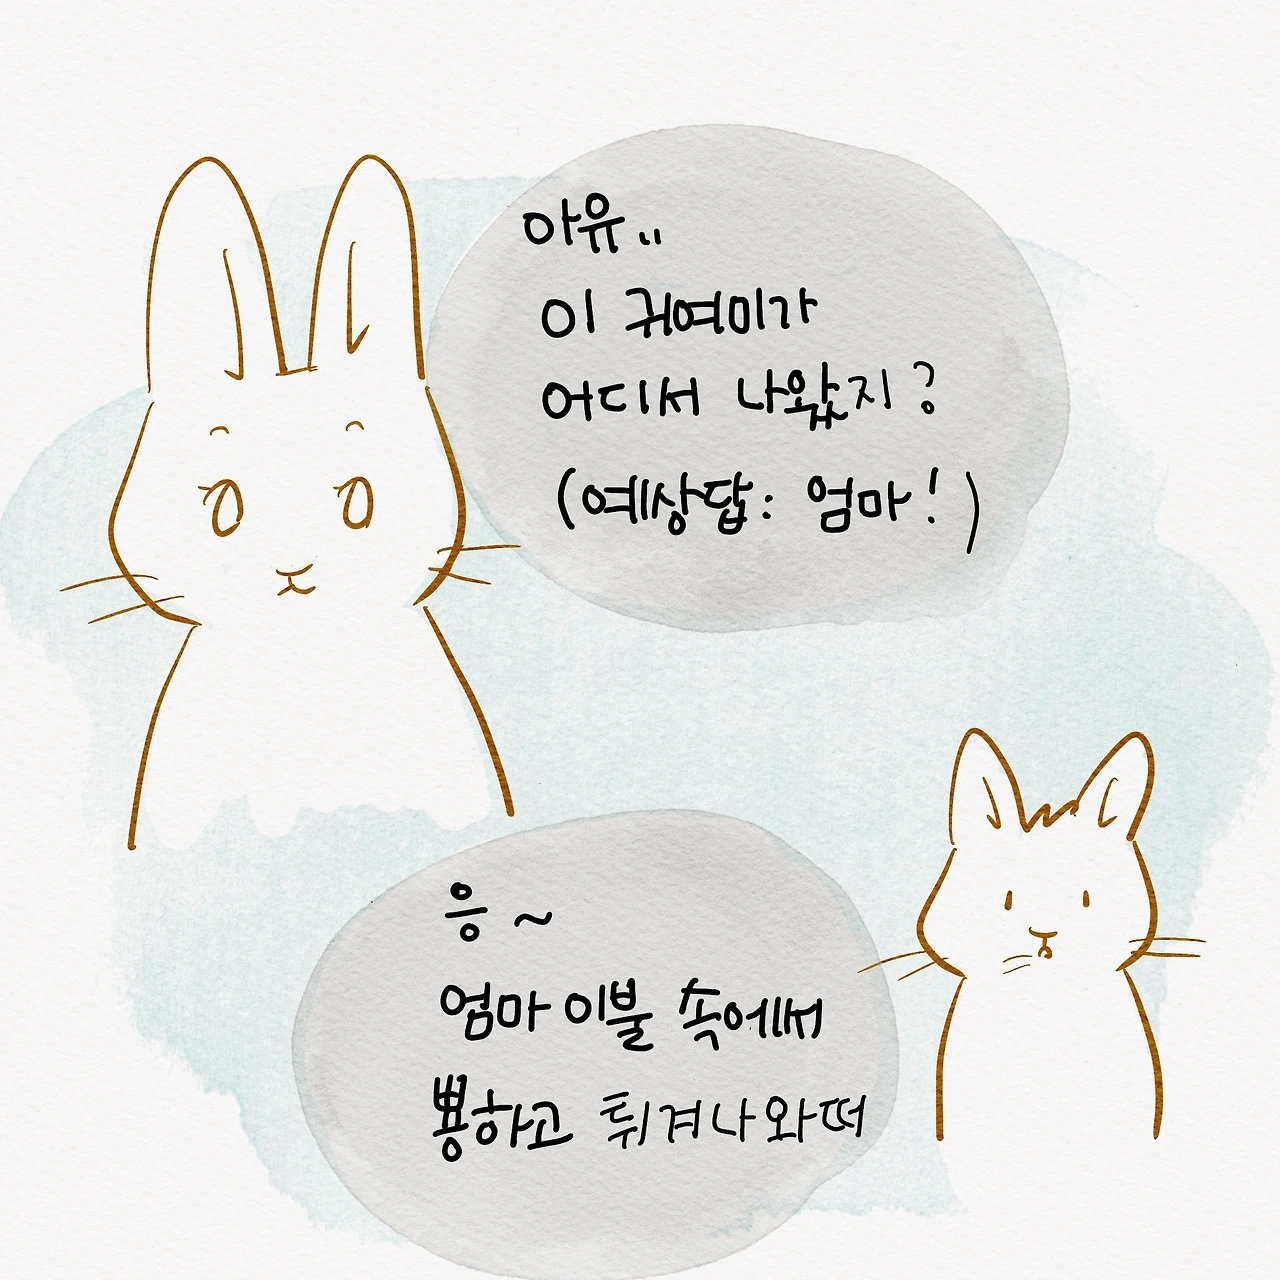 아유..
이 귀여미가
어디서 나왔지?
(예상답: 엄마!)
응~
엄마 이불 속에서
뿅하고 튀겨나와떠